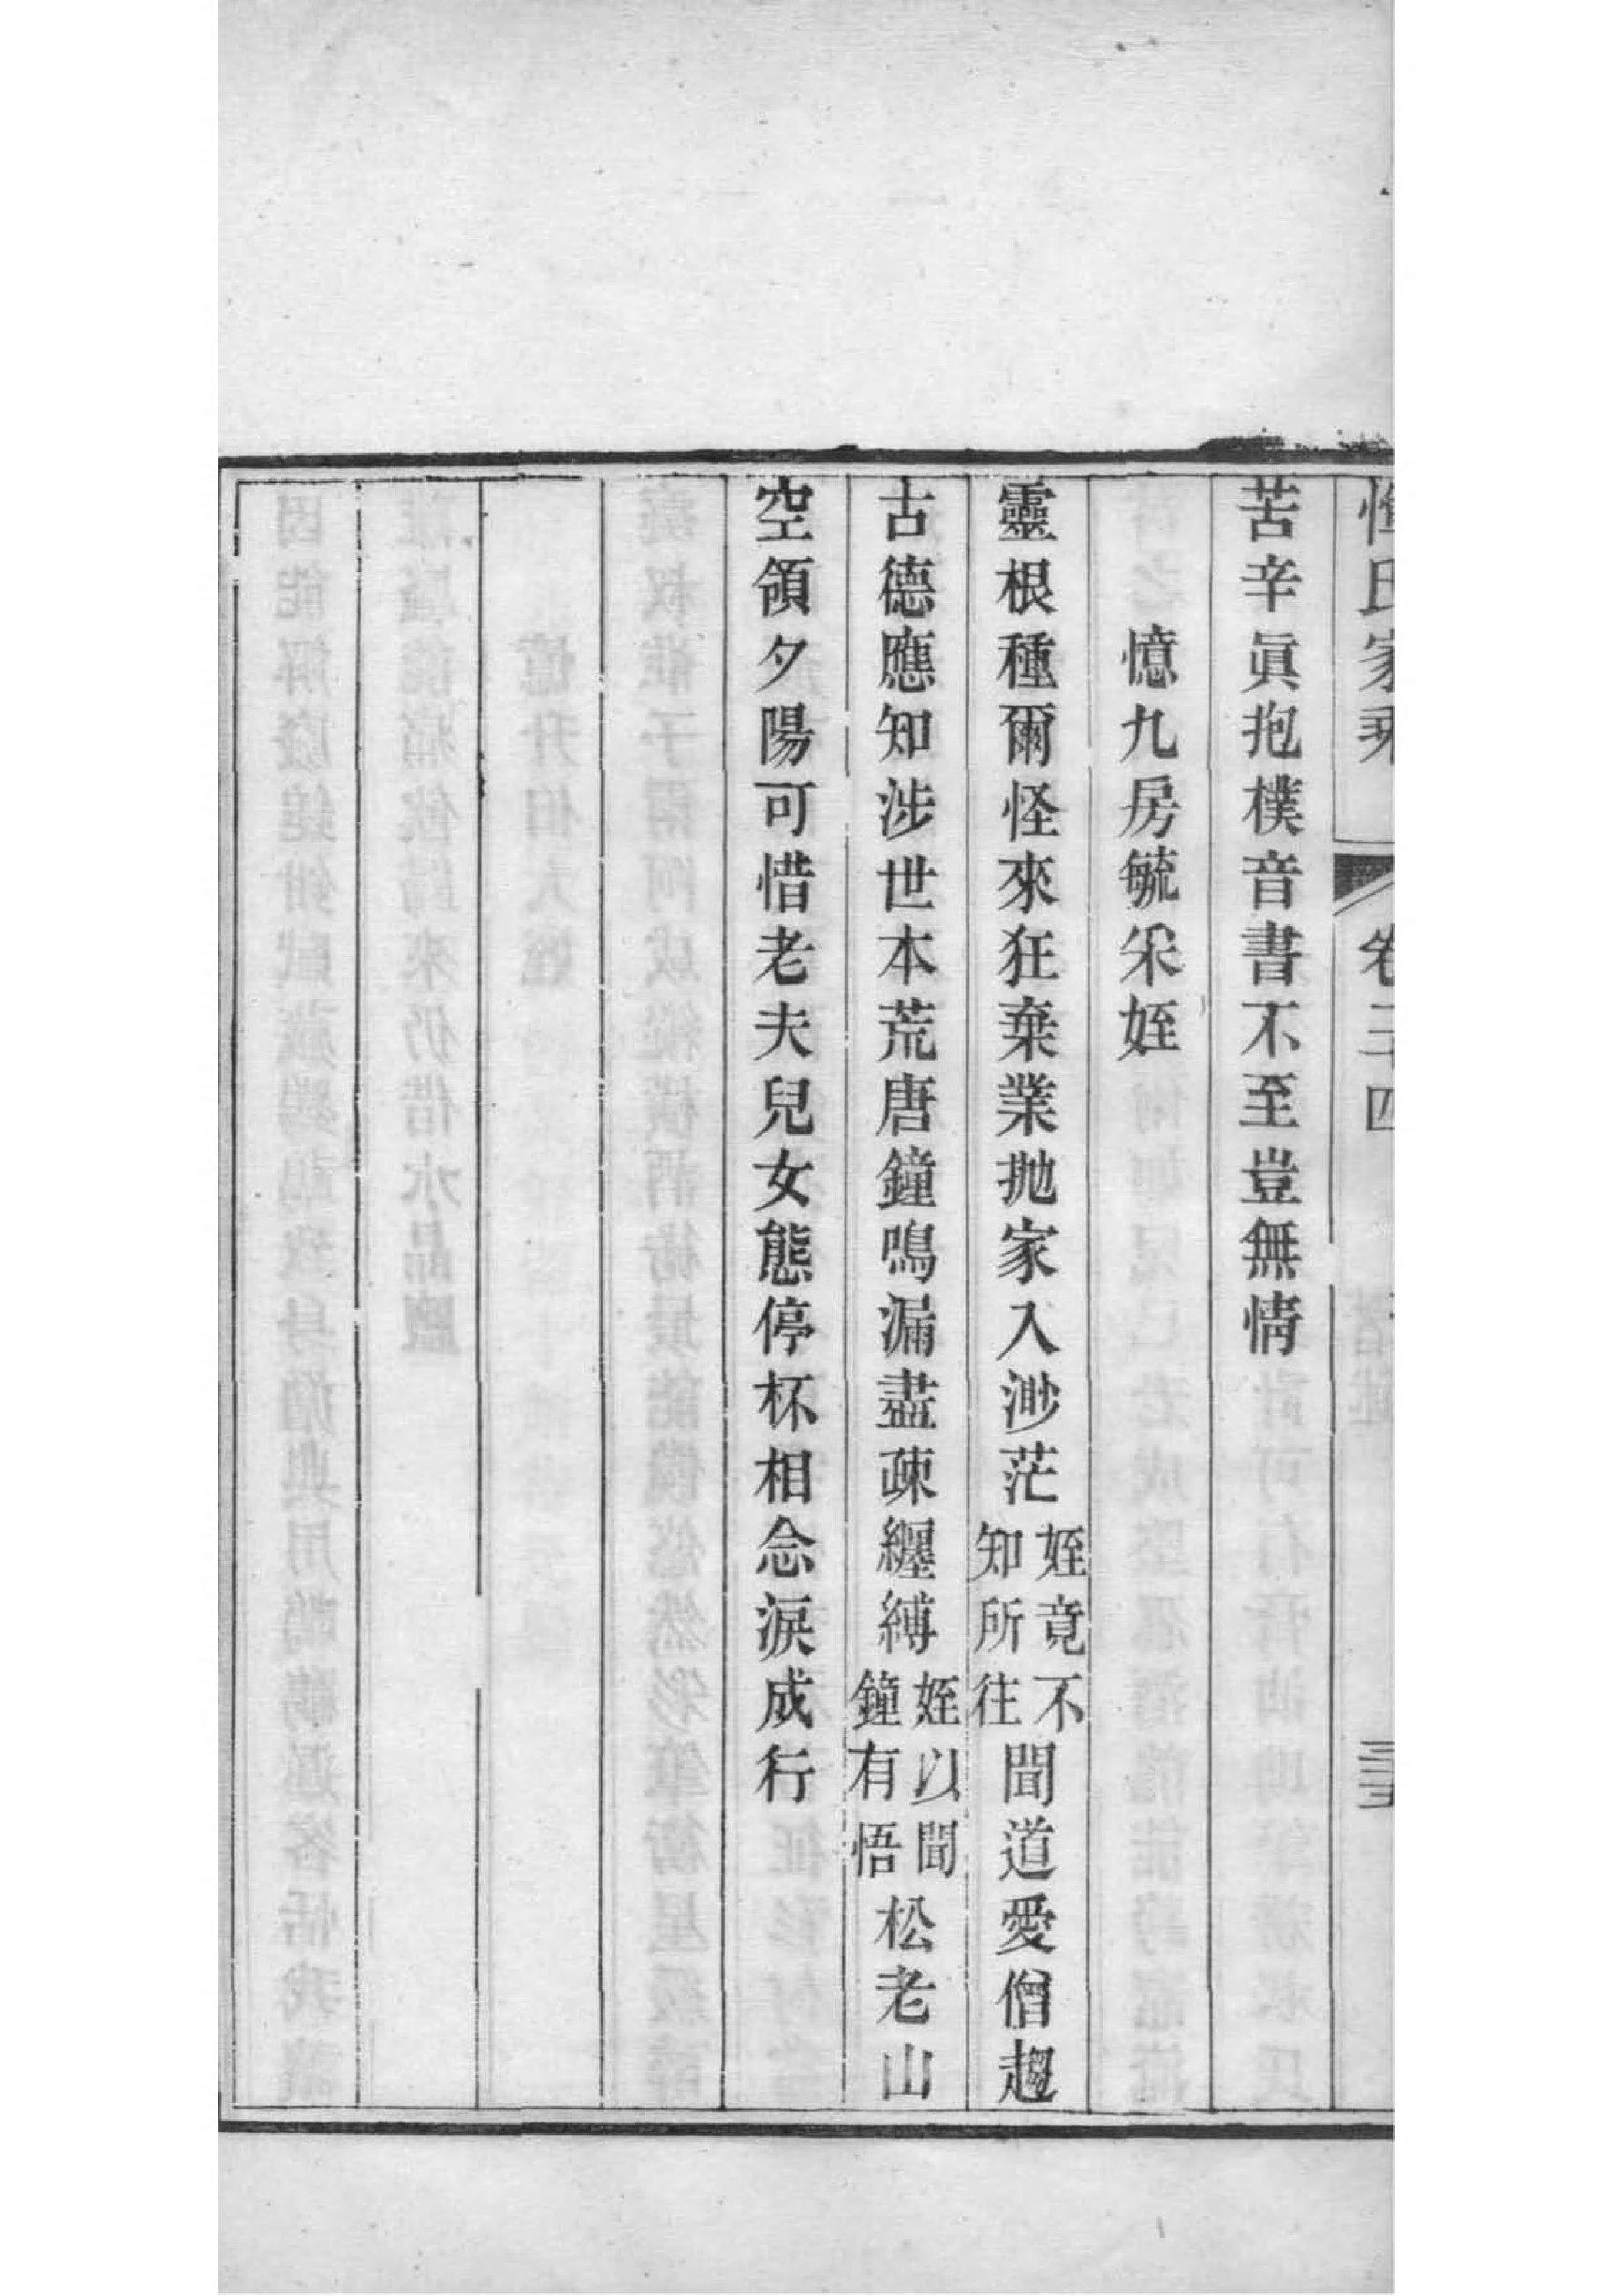 惲氏家乘 卷三四 三五
苦辛眞抱樸音書不至豈無情
憶九房毓釆姪
靈根種爾怪來狂棄業抛家入渺茫姪竟不知所往聞道愛僧趨
古德應知涉世本荒唐鐘鳴漏盡疎纏縛姪以聞鐘有悟松老山
空領夕陽可惜老夫兒女態停杯相念淚成行